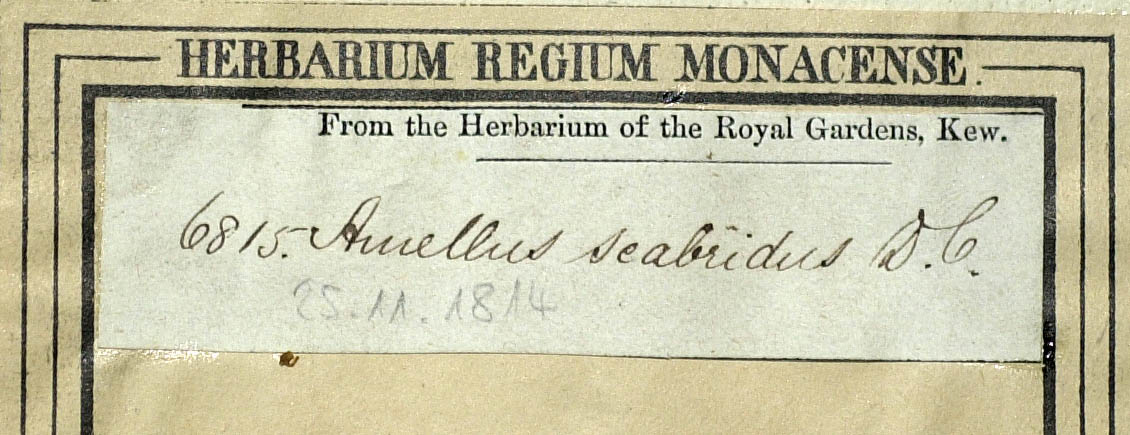 HERBARIUM REGIUM MONACENSE.
From the Herbarium of the Royal Gardens, Kew.
6815. Amellus scabridus D.C.
25.11.1814